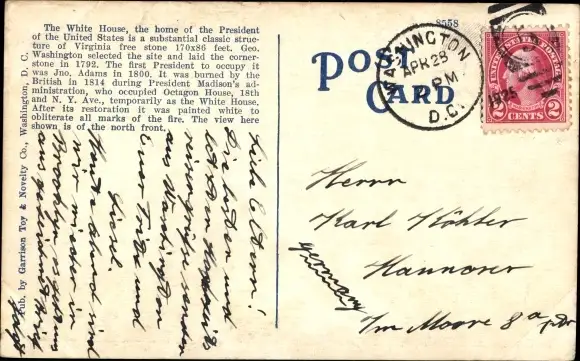 The White House, the home of the President
of the United States is a substantial classic struc-
ture of Virginia free stone 170x86 feet. Geo.
Washington selected the site and laid the corner-
stone in 1792. The first President to occupy it
was Jno. Adams in 1800. It was burned by the
British in 1814 during President Madison's ad-
ministration, who occupied Octagon House, 18th
and N. Y. Ave., temporarily as the White House.
After its restoration it was painted white to
obliterate all marks of the fire. The view here
shown is of the north front.
Pub. by Garrison Toy & Novelty Co., Washington, D. C.
8558
POST
CARD
WASHINGTON
APR 28
PM
D.C.
1925
UNITED STATES POSTAGE
2 CENTS 2
Liebe Eltern!
und
senden
aus Washington
Eure Trude und
Liesel.
Heute abend sind
wir wieder in
Brooklyn. es geht uns
Herrn
Karl Köhler
Hannover
Germany
Im Moore 8a ptr